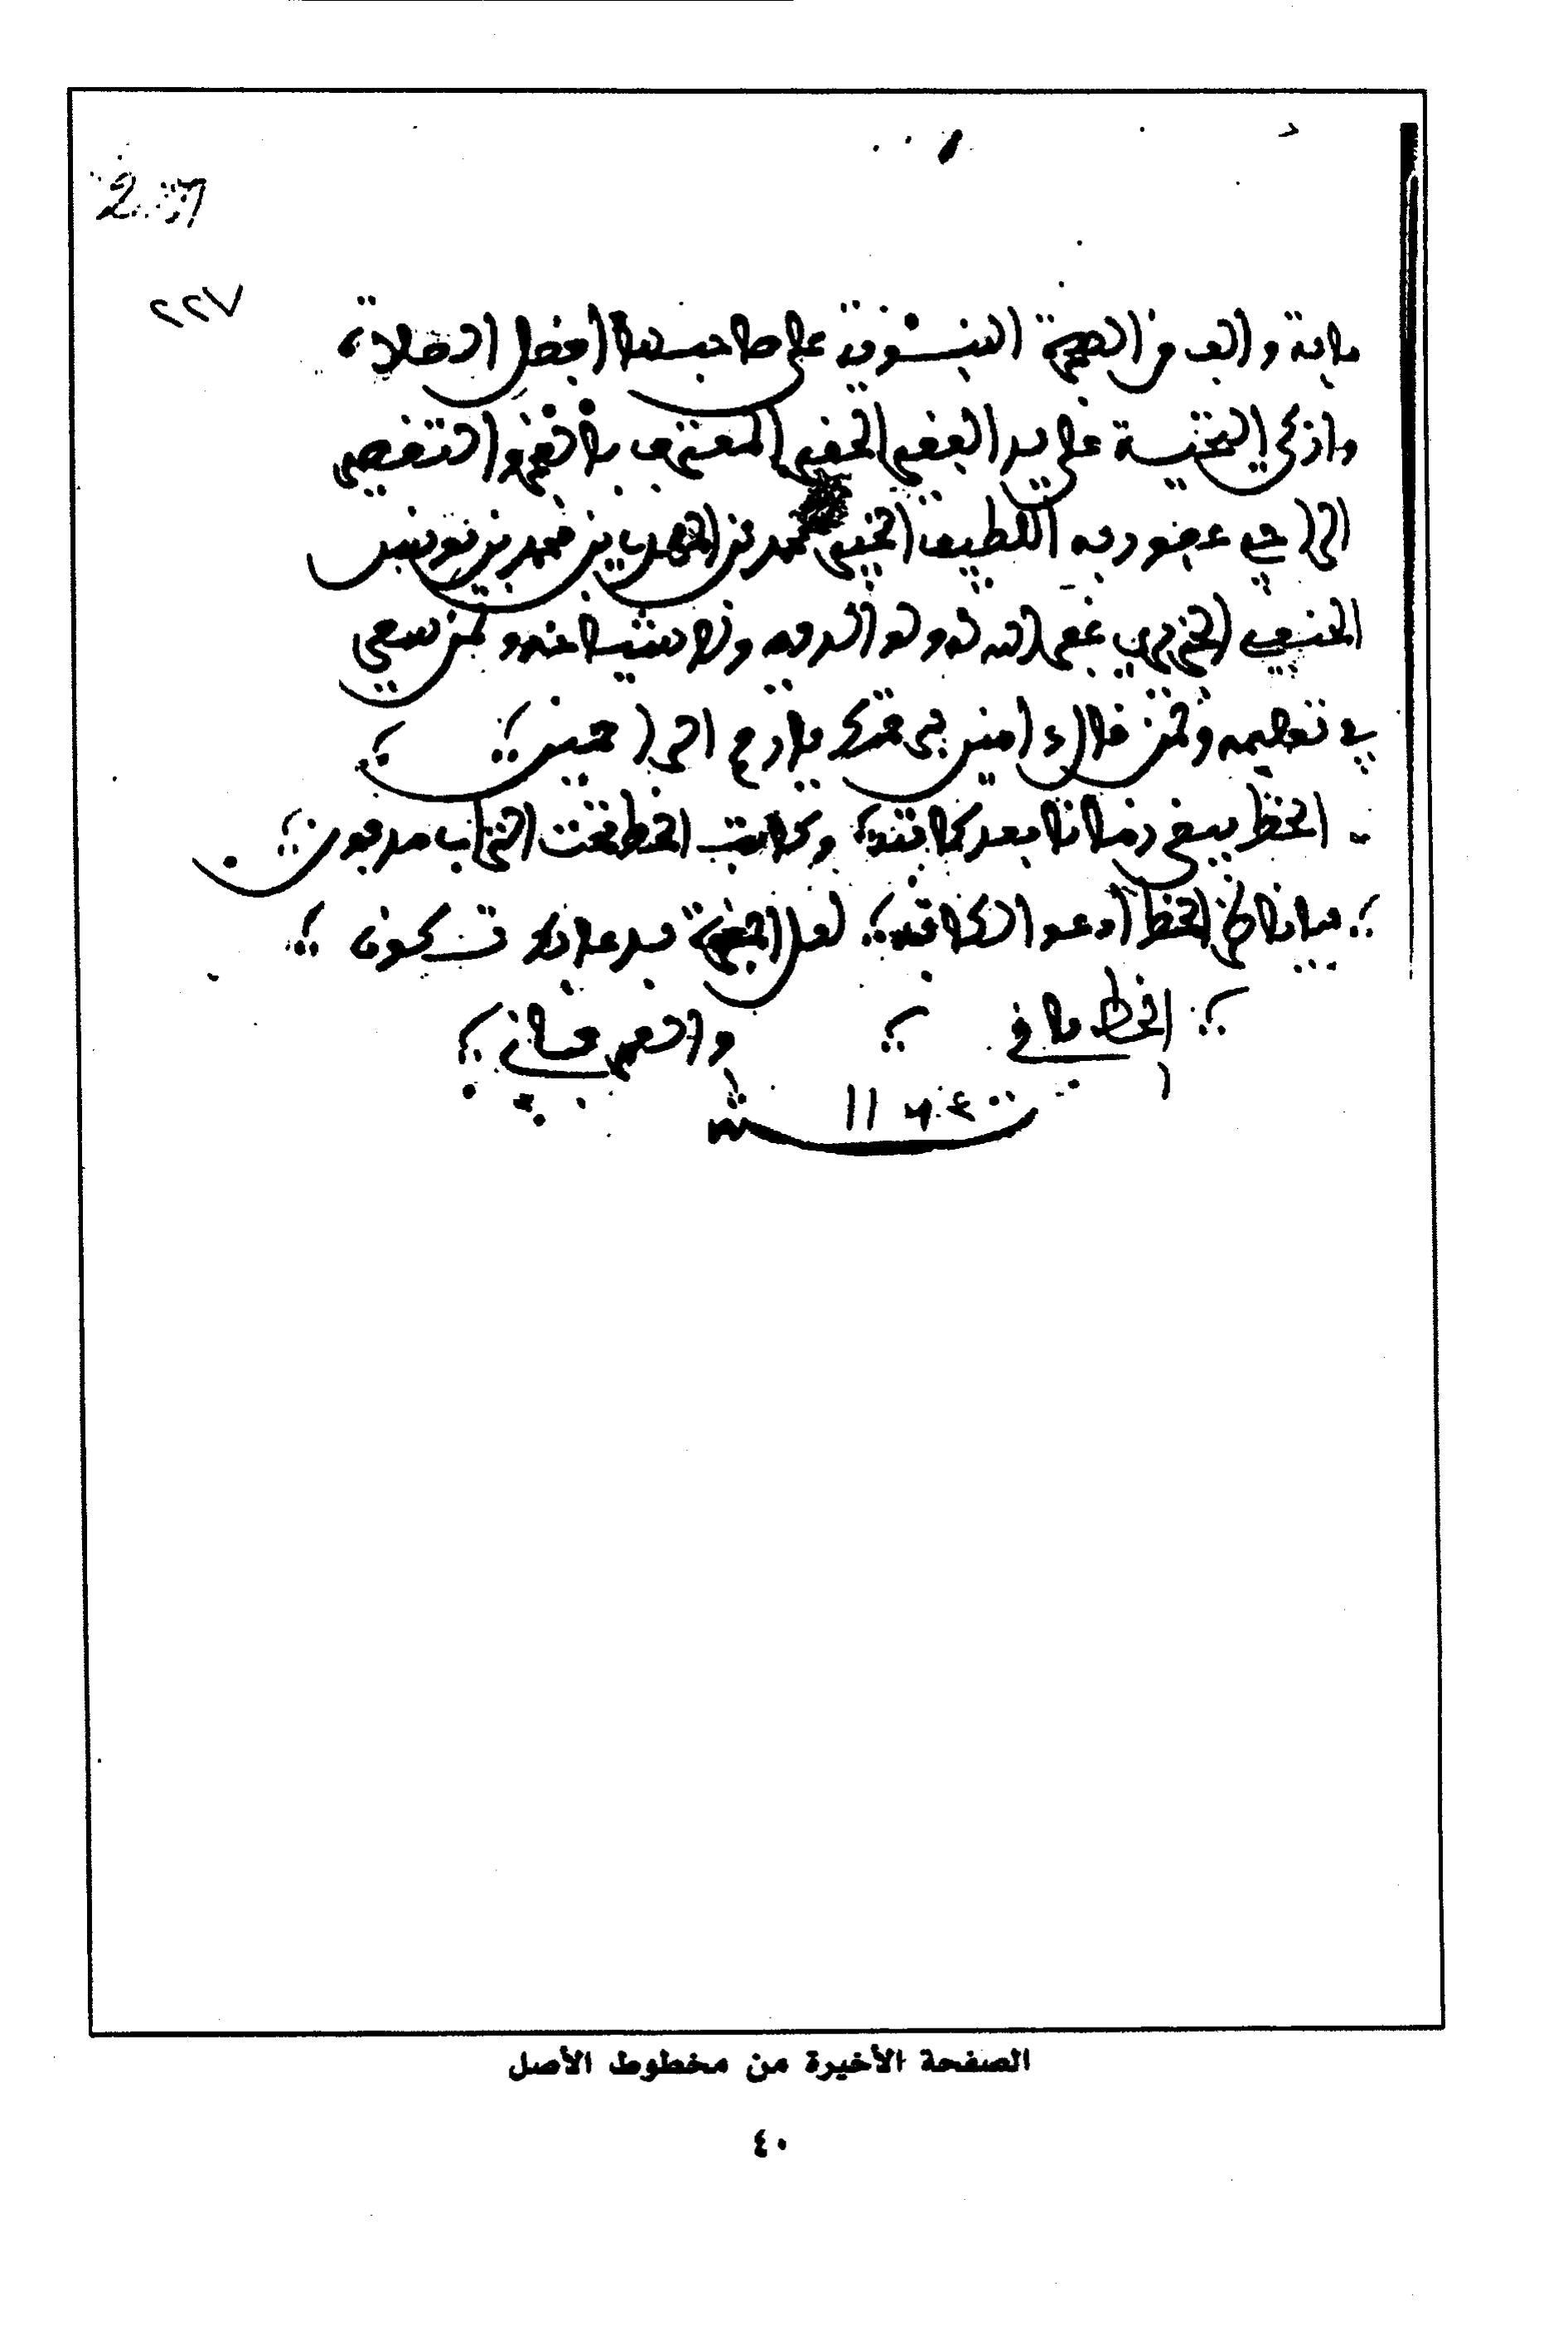 ٢٢٧
ماية والف من الهجرة النبوية على صاحبها افضل الصلاة
وازكى التحية على يد الفقير الحقير المعترف بالعجز والتقصير
الراجي عفو ربه اللطيف الخبير محمد بن المهدي بن محمد بن يونس
الحنفي الجزيري غفر الله له ولوالديه ولاشياخه ولمن سعى
في تعليمه ولمن قال امين بحرمتك يا ارحم الراحمين
الخط يبقى زمانا بعد كاتبه وكاتب الخط تحت التراب مدفون
يا ناظر الخط ادعو لكاتبه لعل الجنة بدعائك تكون
الخط باقي والعمر فاني
سنة ١١
الصفحة الأخيرة من مخطوط الأصل
٤٠